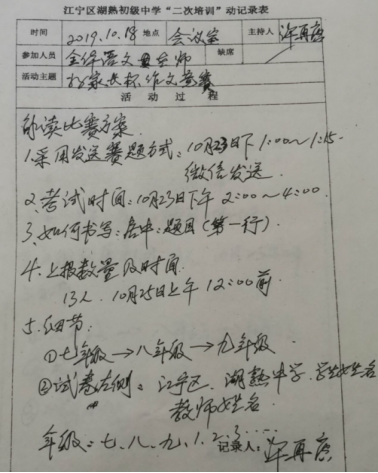 江宁区湖熟初级中学“二次培训”动记录表
时间 2019.10.18 地点 会议室 主持人 许再
参加人员 全体语文 老师 缺席
活动主题 杯作文竞赛
活动过程
解读比赛方案.
1.采用发送赛题方式：10月23日下1:00~1:15-
微信发送.
2.考试时间：10月23日下午 2:00~4:00.
3.如何书写：居中：题目(第一行).
4.上报数量及时间.
13人. 10月25日上午 12:00前
5.细节：
①七年级→八年级→九年级
②试卷左侧：江宁区. 湖熟中学. 学生姓名
教师姓名.
年级：七、八、九、1、2、3……
记录人：许再